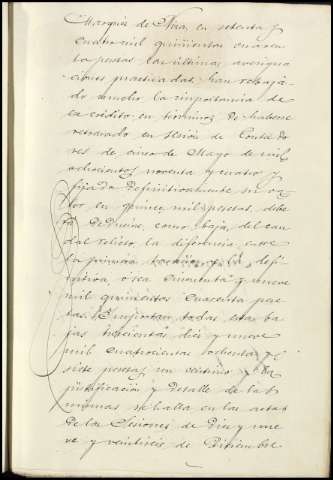 Marqués de Nisa, en setenta y
cuatro mil quinientas cuaren
ta pesetas las últimas averigua
ciones practicadas, han rebaja
do mucho la importancia de
ese crédito en términos de haberse
resolvado en sesión de Contado
res de cinco de Mayo de mil
ochocientos noventa y cuatro y
fijado definitivamente su va
lor en quince mil pesetas, debe
deducirse, como baja, del cau
dal relicto la diferencia entre
la primera y la defi
nitiva, ó sea cincuenta y nueve
mil quinientas cuarenta pese
tas. É importan todas estas ba
jas trescientas diez y nueve
mil cuatrocientas ochenta y
siete pesetas un céntimo y la
justificación y detalle de las
mismas se halla en las actas
de las Sesiones de diez y nue
ve y veintiseis de Diciembre